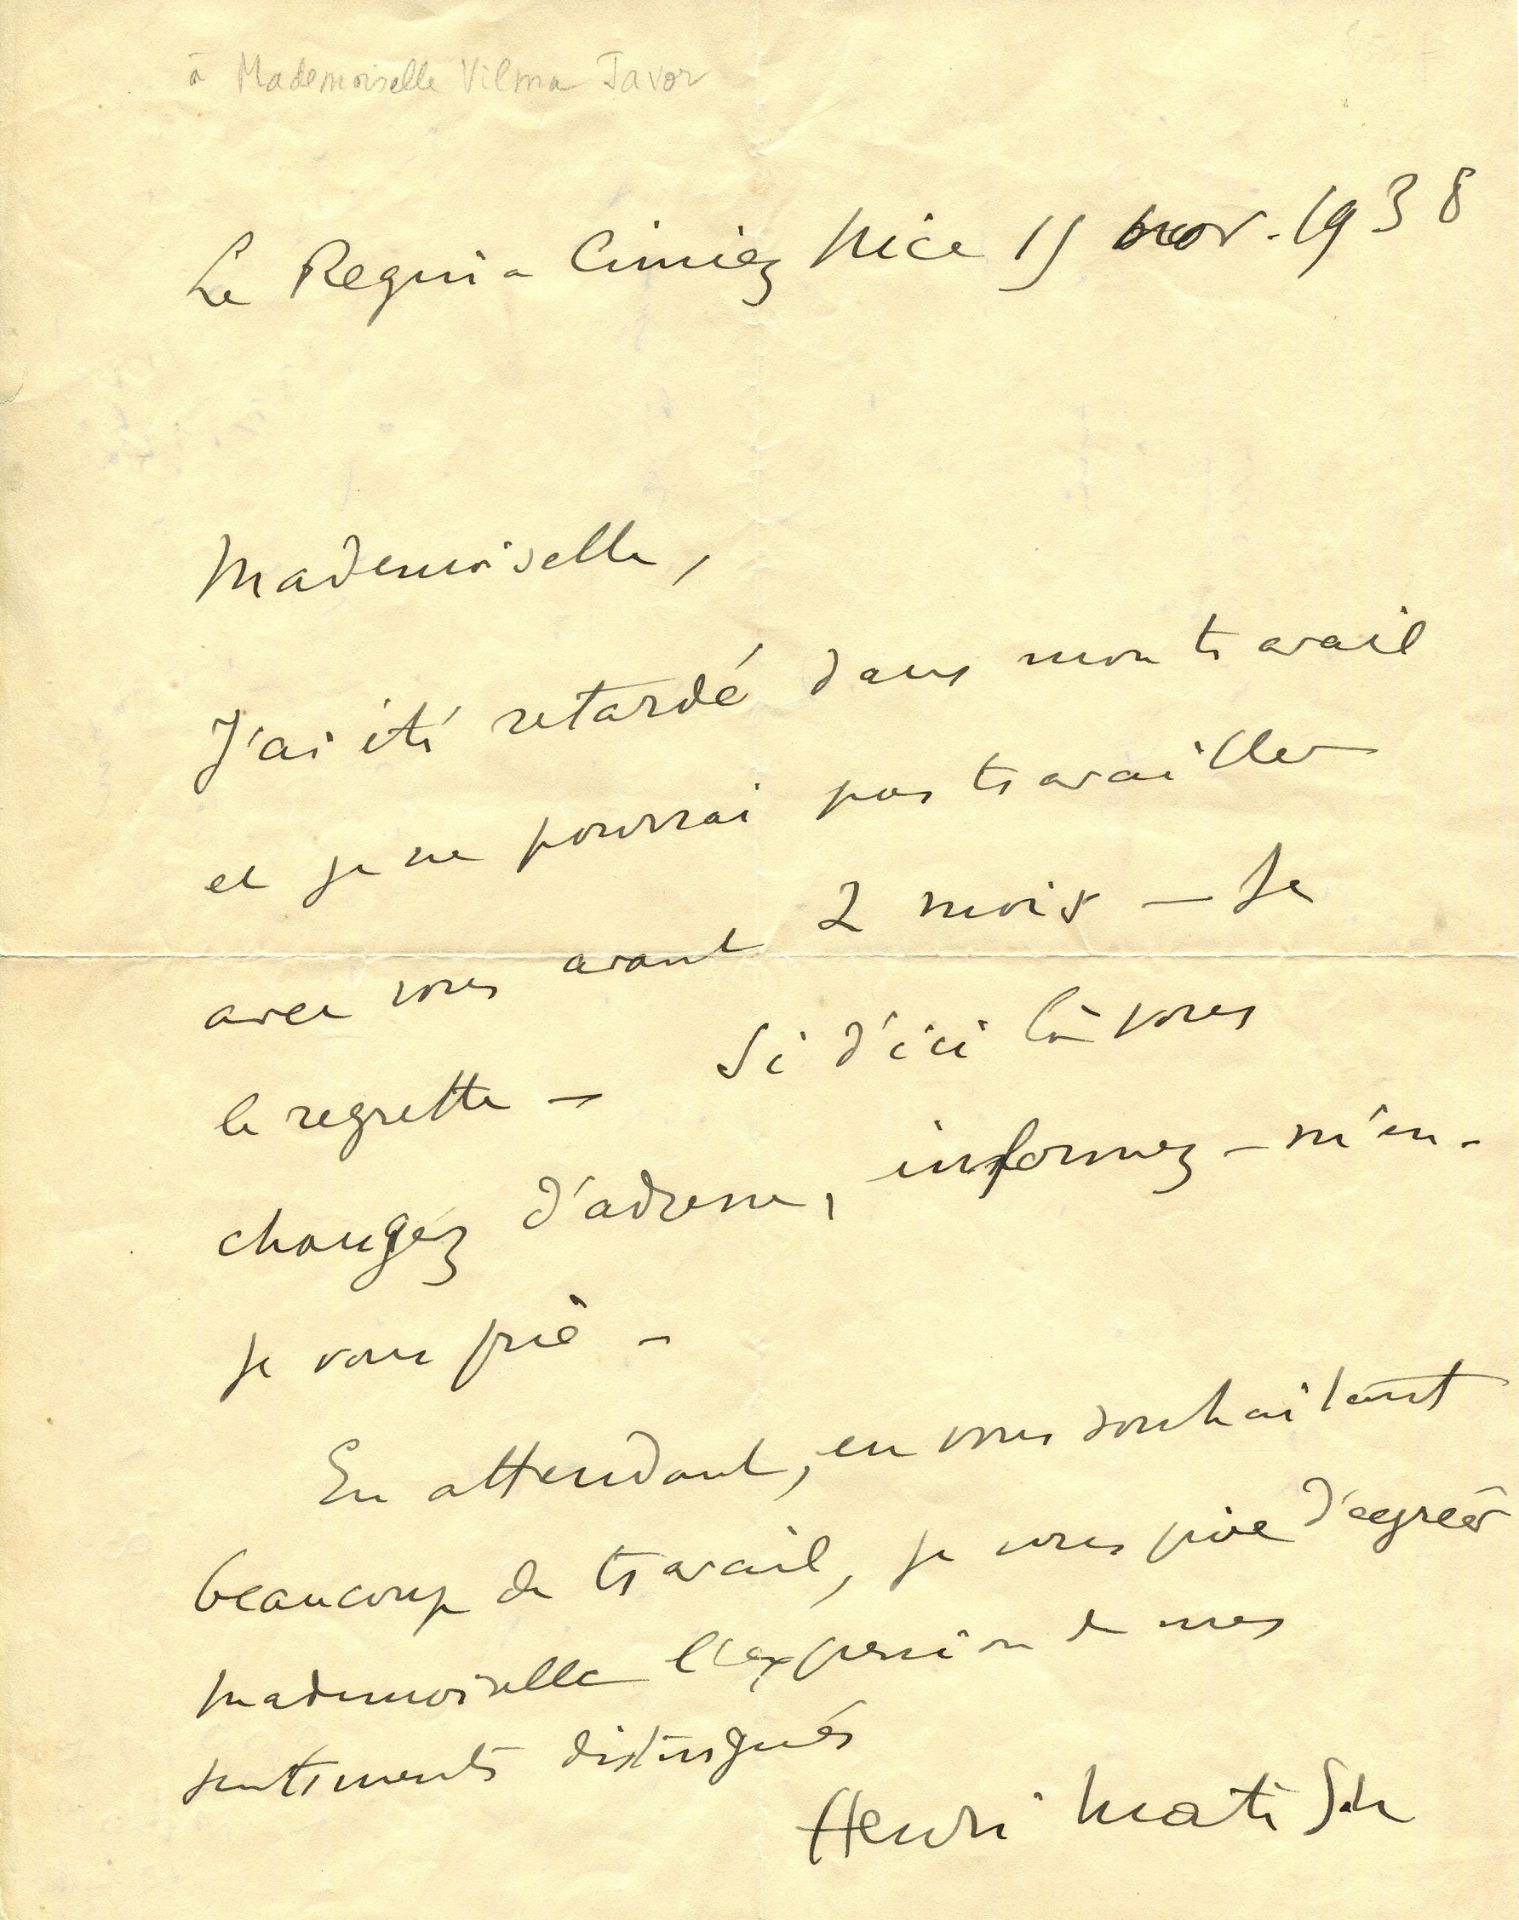 à Mademoiselle Vilma Javor
Le Regina Cimiez Nice 15 nov. 1938
Mademoiselle,
J'ai été retardé dans mon travail
et je ne pourrai pas travailler
avec vous avant 2 mois – Je
le regrette – Si d'ici là vous
changez d'adresse, informez-m'en-
je vous prie –
En attendant, en vous souhaitant
beaucoup de travail, je vous prie d'agréer
mademoiselle l'expression de mes
sentiments distingués
Henri Matisse